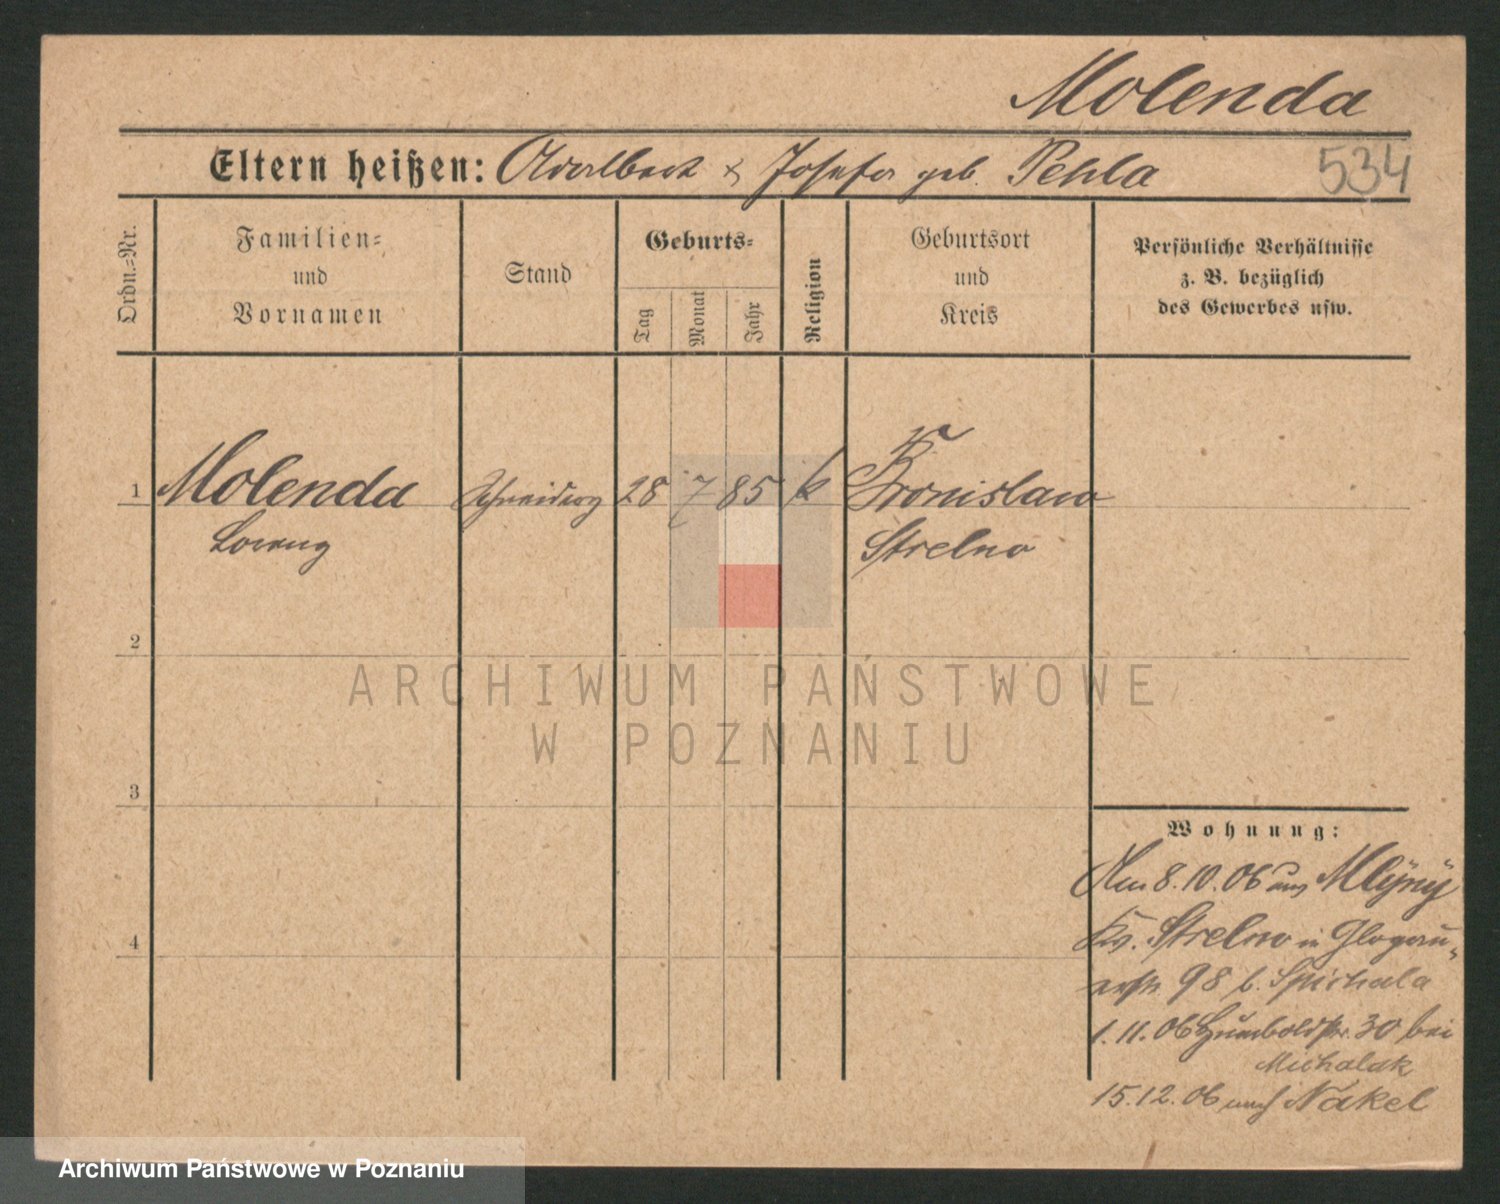 Molenda
Eltern heißen: Adalbert & Josefa geb. Pehla
534
Ordn.=Nr.
Familien=
und
Vornamen
Stand
Geburts=
Tag
Monat
Jahr
Religion
Geburtsort
und
Kreis
Persönliche Verhältnisse
z. B. bezüglich
des Gewerbes usw.
1 Molenda Schneiderg 28 7 85 k Bronislaw
Lorenz Strelno
2
ARCHIWUM PAŃSTWOWE
W POZNANIU
3
Wohnung:
8.10.06 aus Mlÿnÿ
Kr. Strelno in Glogau-
erstr 98 b. Spichala
4
1.11.06 Humboldstr. 30 bei
Michalak
15.12.06 nach Nakel
Archiwum Państwowe w Poznaniu